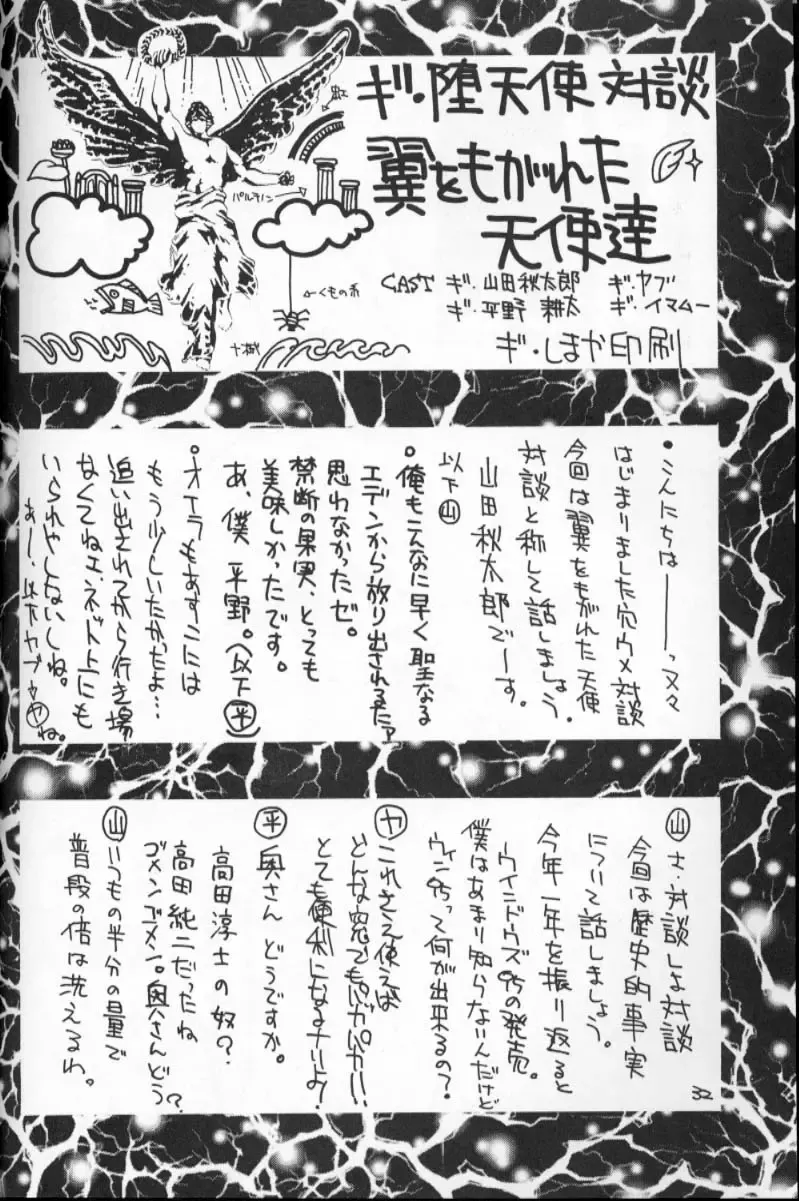 ギ・堕天使対談
翼をもがれた
天使達
CAST ギ・山田秋太郎 ギ・ヤブ
ギ・平野耕太 ギ・イマムー
ギ・しまや印刷
虹
パルテノン
←くもの糸
・こんにちは━━━っ又々
はじまりました穴ウメ対談
今回は翼をもがれた天使
対談と称して話しましょう。
山田秋太郎でーす。
以下㊤
・俺もこんなに早く聖なる
エデンから放り出されるたァ
思わなかったゼ。
禁断の果実、とっても
美味しかったです。
あ、僕 平野。(以下㊥)
・オイラもあすこには
もう少しいたかったよ…
追い出されてから行き場
なくてねェ、ネド上にも
いられやしないしね。
あー、以下ヤブや㋳ね。
山 さ・対談しよ対談
今回は歴史的事実
について話しましょう。
今年一年を振り返ると
ウインドウズ95の発売。
僕はあまり知らないんだけど
ウィン95って何が出来るの?
ヤ これさえ使えば
どんな窓でもパカパカ!!
とても便利になるナリよ!
平 奥さんどうですか。
高田淳士の奴?
高田純二だったね
ゴメンゴメン。奥さんどう?
山 いつもの半分の量で
普段の倍は洗えるわ。
32